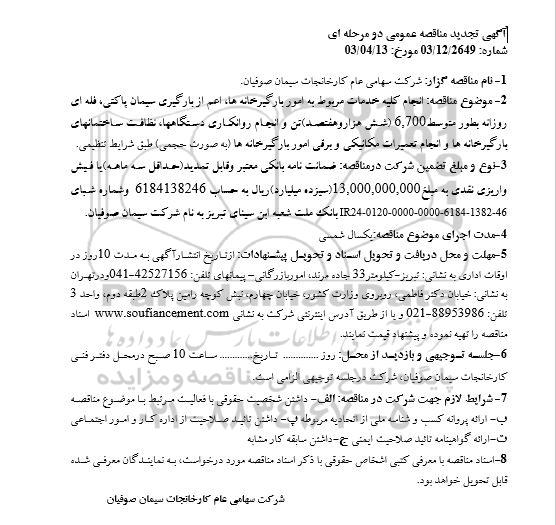 آگهی تجدید مناقصه عمومی دو مرحله ای
شماره: 03/12/2649 مورخ: 03/04/13
1- نام مناقصه گزار: شرکت سهامی عام کارخانجات سیمان صوفیان.
2- موضوع مناقصه: انجام کلیه خدمات مربوط به امور بارگیرخانه ها، اعم از بارگیری سیمان پاکتی، فله ای
روزانه بطور متوسط 6,700 (شش هزاروهفتصد)تن و انجام روانکاری دستگاهها، نظافت ساختمانهای
بارگیرخانه ها و انجام تعمیرات مکانیکی و برقی امور بارگیرخانه ها (به صورت حجمی) طبق شرایط تنظیمی.
3-نوع و مبلغ تضمین شرکت درمناقصه: ضمانت نامه بانکی معتبر وقابل تمدید(حداقل سه ماهه)یا فیش
واریزی نقدی به مبلغ13,000,000,000(سیزده میلیارد)ریال به حساب 6184138246 وشماره شبای
IR24-0120-0000-0000-6184-1382-46بانک ملت شعبه ابن سینای تبریز به نام شرکت سیمان صوفیان.
4-مدت اجرای موضوع مناقصه:یکسال شمسی
5-مهلت و محل دریافت و تحویل اسناد و تحویل پیشنهادات: ازتاریخ انتشارآگهی به مدت 10روز در
اوقات اداری به نشانی: تبریز-کیلومتر33 جاده مرند، اموربازرگانی- پیمانهای تلفن: 42527156-041ودرتهران
به نشانی: خیابان دکتر فاطمی، روبروی وزارت کشور، خیابان چهارم، نبش کوچه رامین پلاک 2طبقه دوم، واحد 3
تلفن: 88953986-021 و یا از طریق آدرس اینترنتی شرکت به نشانی www.soufiancement.com اسناد
مناقصه را تهیه نموده و پیشنهاد قیمت نمایند.
6-جلسه توجیهی و بازدید از محل: روز .............. تاریخ............. ساعت 10 صبح درمحل دفتر فنی
کارخانجات سیمان صوفیان، شرکت درجلسه توجیهی الزامی است.
7- شرایط لازم جهت شرکت در مناقصه: الف- داشتن شخصیت حقوقی با فعالیت مرتبط با موضوع مناقصه
ب- ارائه پروانه کسب و شناسه ملی از اتحادیه مربوطه پ- داشتن تائید صلاحیت از اداره کار و امور اجتماعی
ت-ارائه گواهینامه تائید صلاحیت ایمنی ج-داشتن سابقه کار مشابه
8-اسناد مناقصه با معرفی کتبی اشخاص حقوقی با ذکر اسناد مناقصه مورد درخواست، به نمایندگان معرفی شده
قابل تحویل خواهد بود.
شرکت سهامی عام کارخانجات سیمان صوفیان